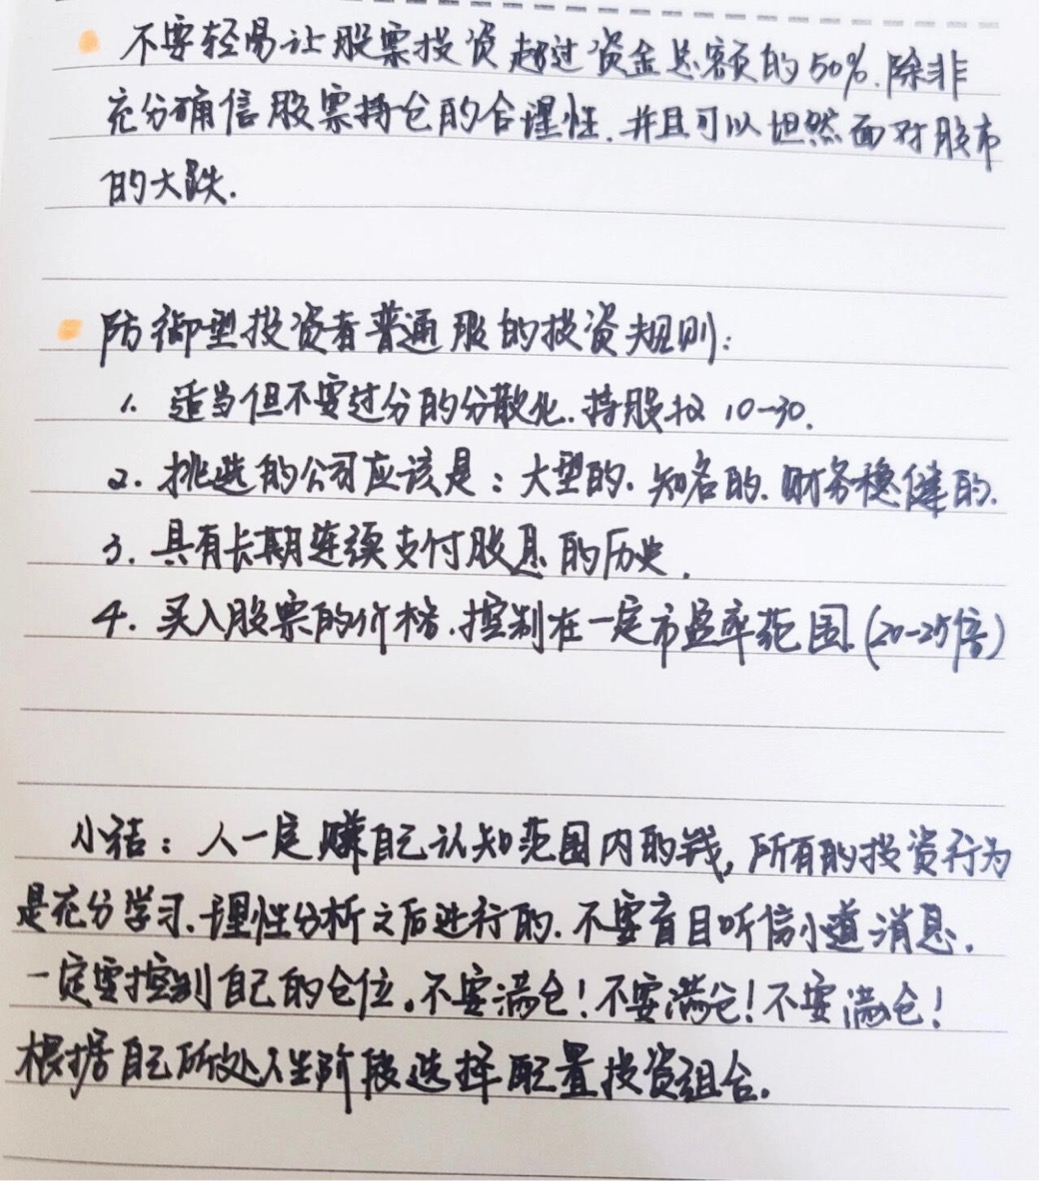 不要轻易让股票投资超过资金总额的50%.除非
充分确信股票持仓的合理性.并且可以坦然面对股市
的大跌.
防御型投资者普通股的投资规则:
1. 适当但不要过分的分散化.持股权 10-30.
2. 挑选的公司应该是:大型的.知名的.财务稳健的.
3. 具有长期连续支付股息的历史.
4. 买入股票的价格.控制在一定市盈率范围.(20-25倍)
小结:人一定赚自己认知范围内的钱,所有的投资行为
是充分学习.理性分析之后进行的.不要盲目听信小道消息.
一定要控制自己的仓位。不要满仓!不要满仓!不要满仓!
根据自己所处人生阶段选择配置投资组合.